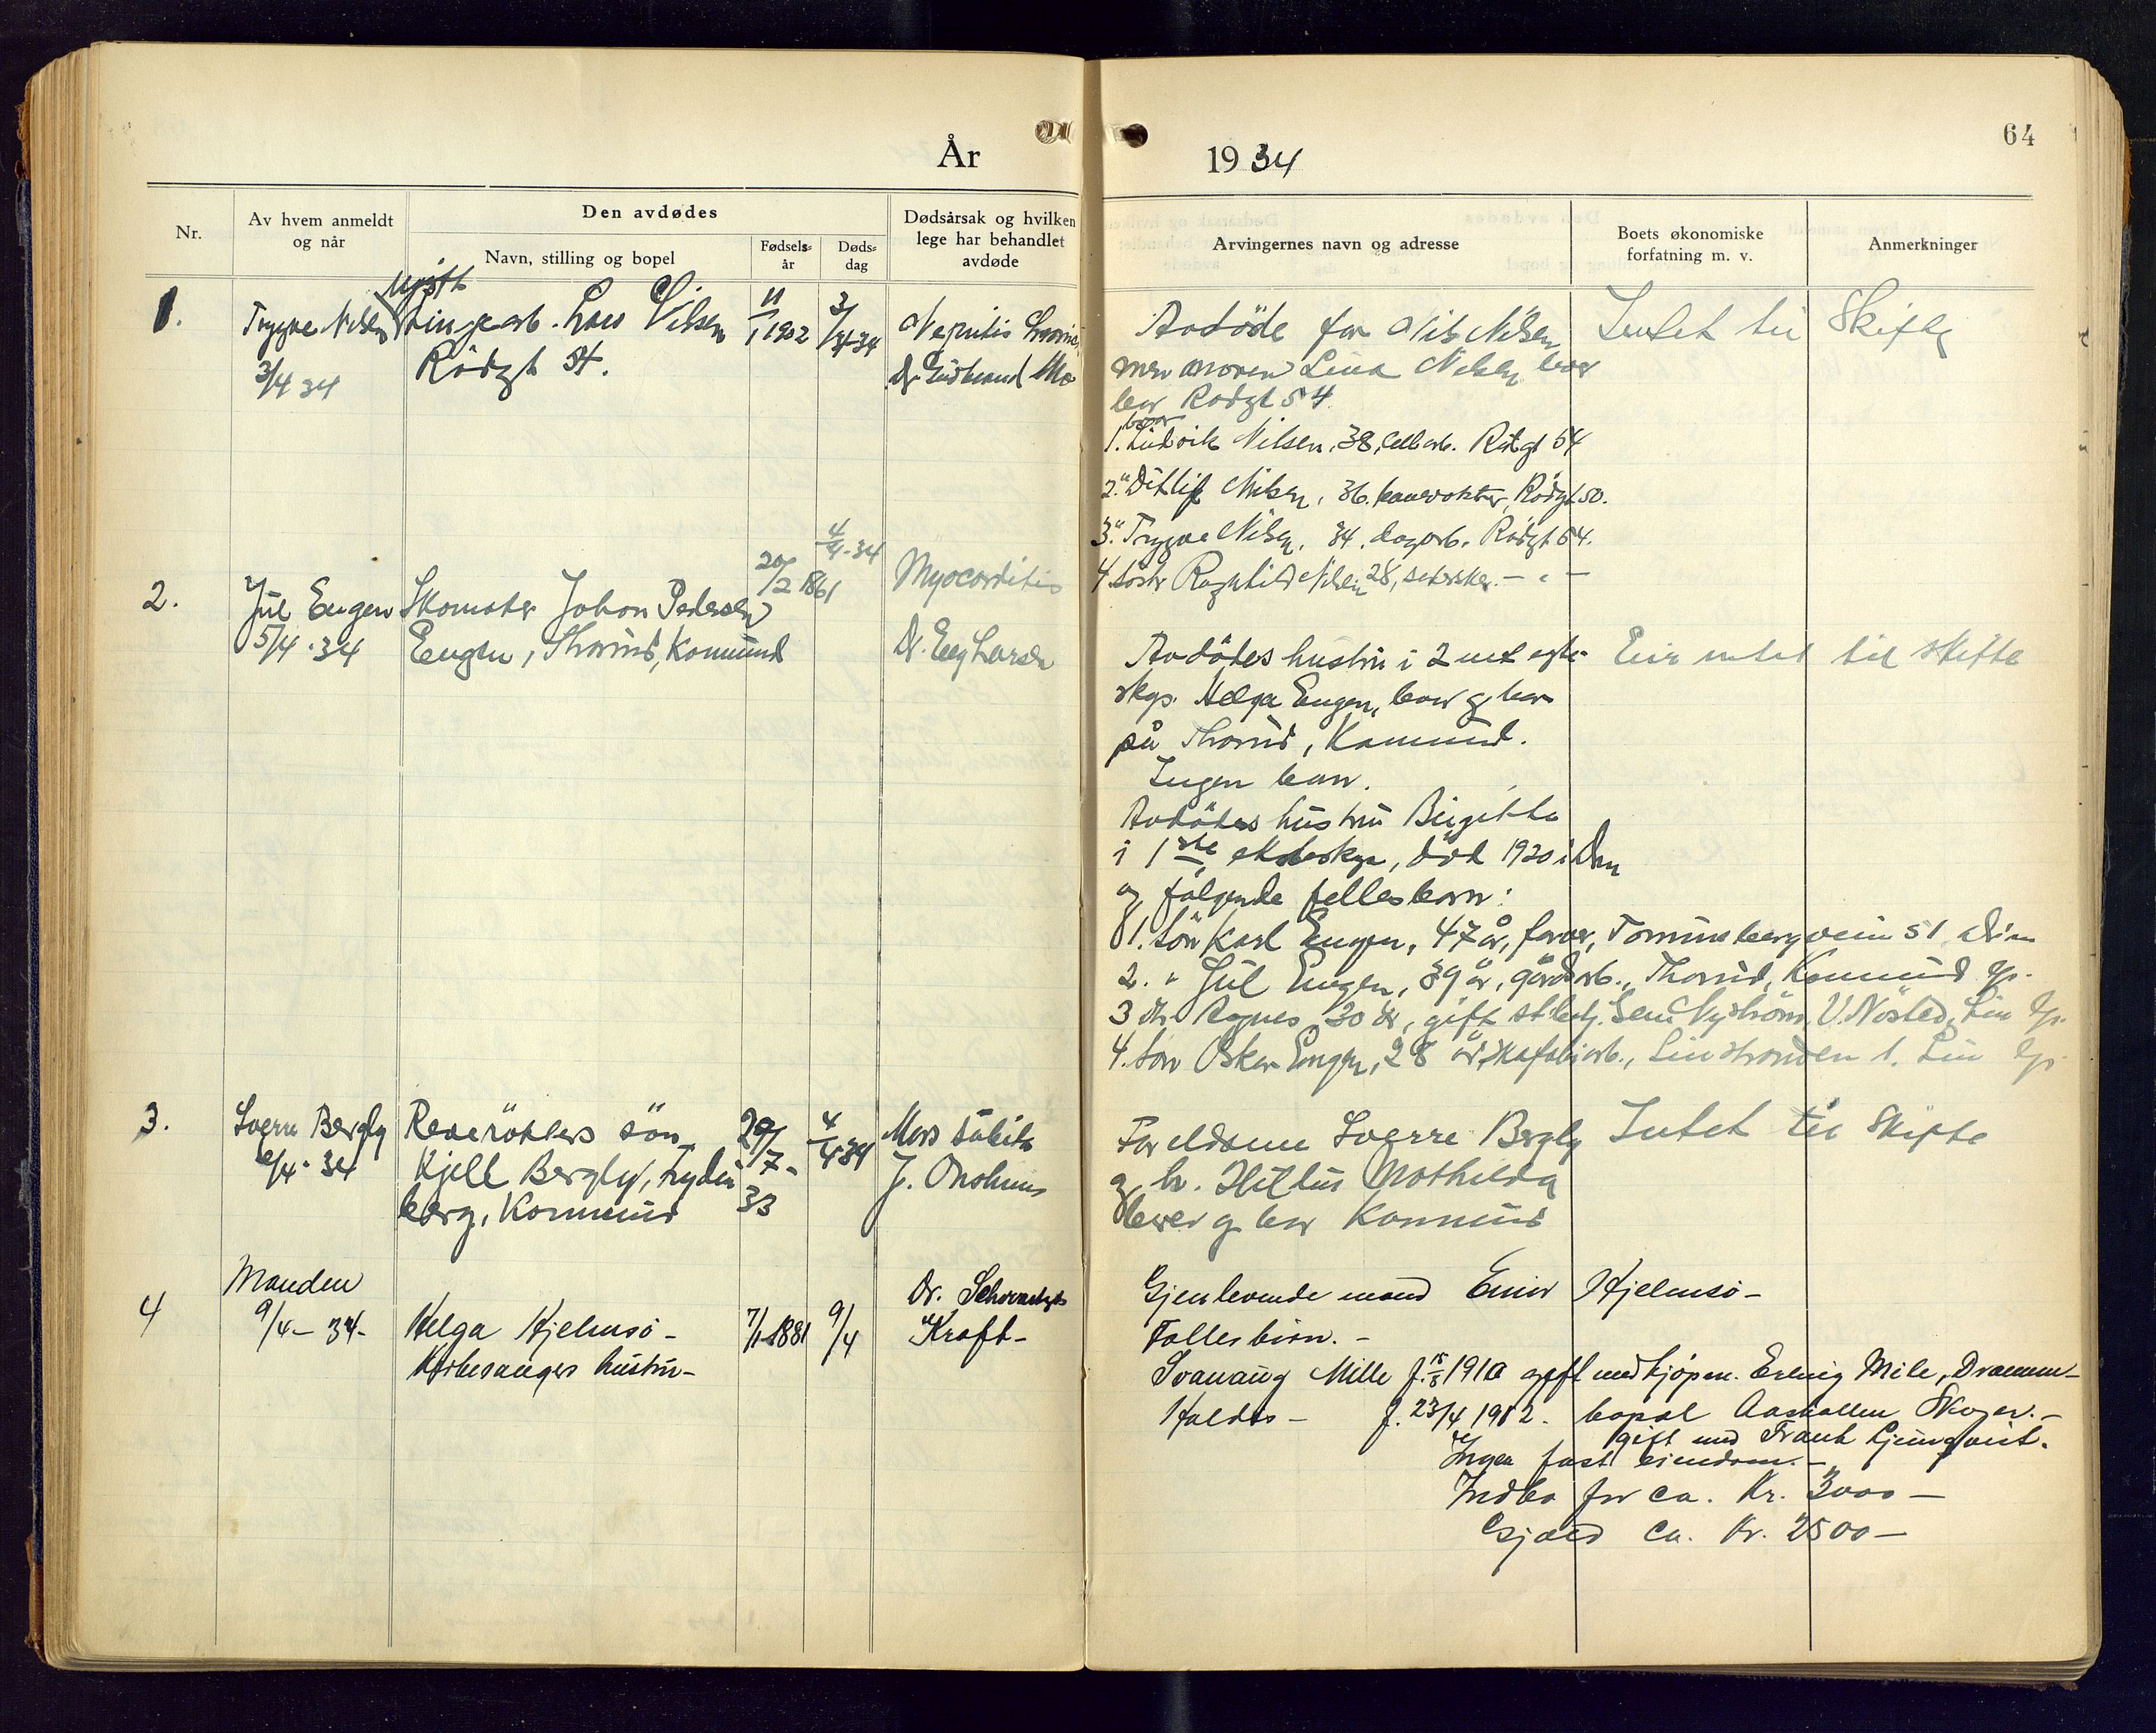 År 1934
64
Nr.
Av hvem anmeldt og når
Den avdødes
Navn, stilling og bopel
Fødselsår
Dødsdag
Dødsårsak og hvilken lege har behandlet avdøde
Arvingernes navn og adresse
Boets økonomiske forfatning m. v.
Anmerkninger
1.
Trygve Nilsen
3/4 34
ugift
Lars Nilsen
Rödgt 54.
11/1 1902
3/4 34
Nefritis
Dr. Gudbrand Mo
Avdöde far Nils Nilsen
men moren Lina Nilsen lever
bor Rödgt 54
1. bror Ludvik Nilsen, 38, cellarb. Rödgt 54
2. " Ditlif Nilsen, 36. banevokter, Rödgt 50.
3. " Trygve Nilsen, 34. dagarb. Rödgt 54.
4. söster Ragnhild Nilsen 28, - " -
Intet til Skifte
2.
Jul Eugen
5/4. 34
Skomaker Johan Pedersen
Eugen, Thorrud, Konnerud
20/2 1861
4/4-34
Myocarditis
Dr. Eeg Larsen
Avdödes hustru i 2net egte-
skap. Helga Eugen, lever og bor
på Thorrud, Konnerud.
Ingen barn.
Avdödes hustru Birgitte
i 1ste ekteskap, död 1920 i Drm
og fölgende fellesbarn:
1. Sön Karl Eugen, 47 år, farver, Tomineborgveien 51 Drm
2. " Jul Eugen, 39 år, gårdarb., Thorrud, Konnerud
3 dtr Agnes 30 år, gift Nyström, V. Nösted, Lier
4. Sön Oskar Eugen, 28 år, Lierstranden 1. Lier
Eier intet til skifte
3.
Sverre Bergly
6/4. 34
Reverökters sön
Kjell Bergly,
berg, Konnerud
29/7-
33
4/4 34
Mors subita
J. Onshuus
Foreldrene Sverre Bergly
og h. Hustru Mathilda
lever og bor Konnerud
Intet til Skifte
4
Manden
9/4- 34-
Helga Hjelmsö -
Kirkesangers hustru -
7/1-1881
9/4
Dr.
Kreft -
Gjenlevende mand Einar Hjelmsö -
Fælles börn. -
Svanaug Mille f. 15/8 1910 gift med kjöpm. Erling Mile, Drammen -
Haldis - f. 23/4 1912. bopæl Aaskollen Skoger. -
gift med Frank Ljungqvist.
Ingen fast eiendom. -
Indbo for ca. Kr. 3000 -
Gjæld ca. Kr. 2500 -